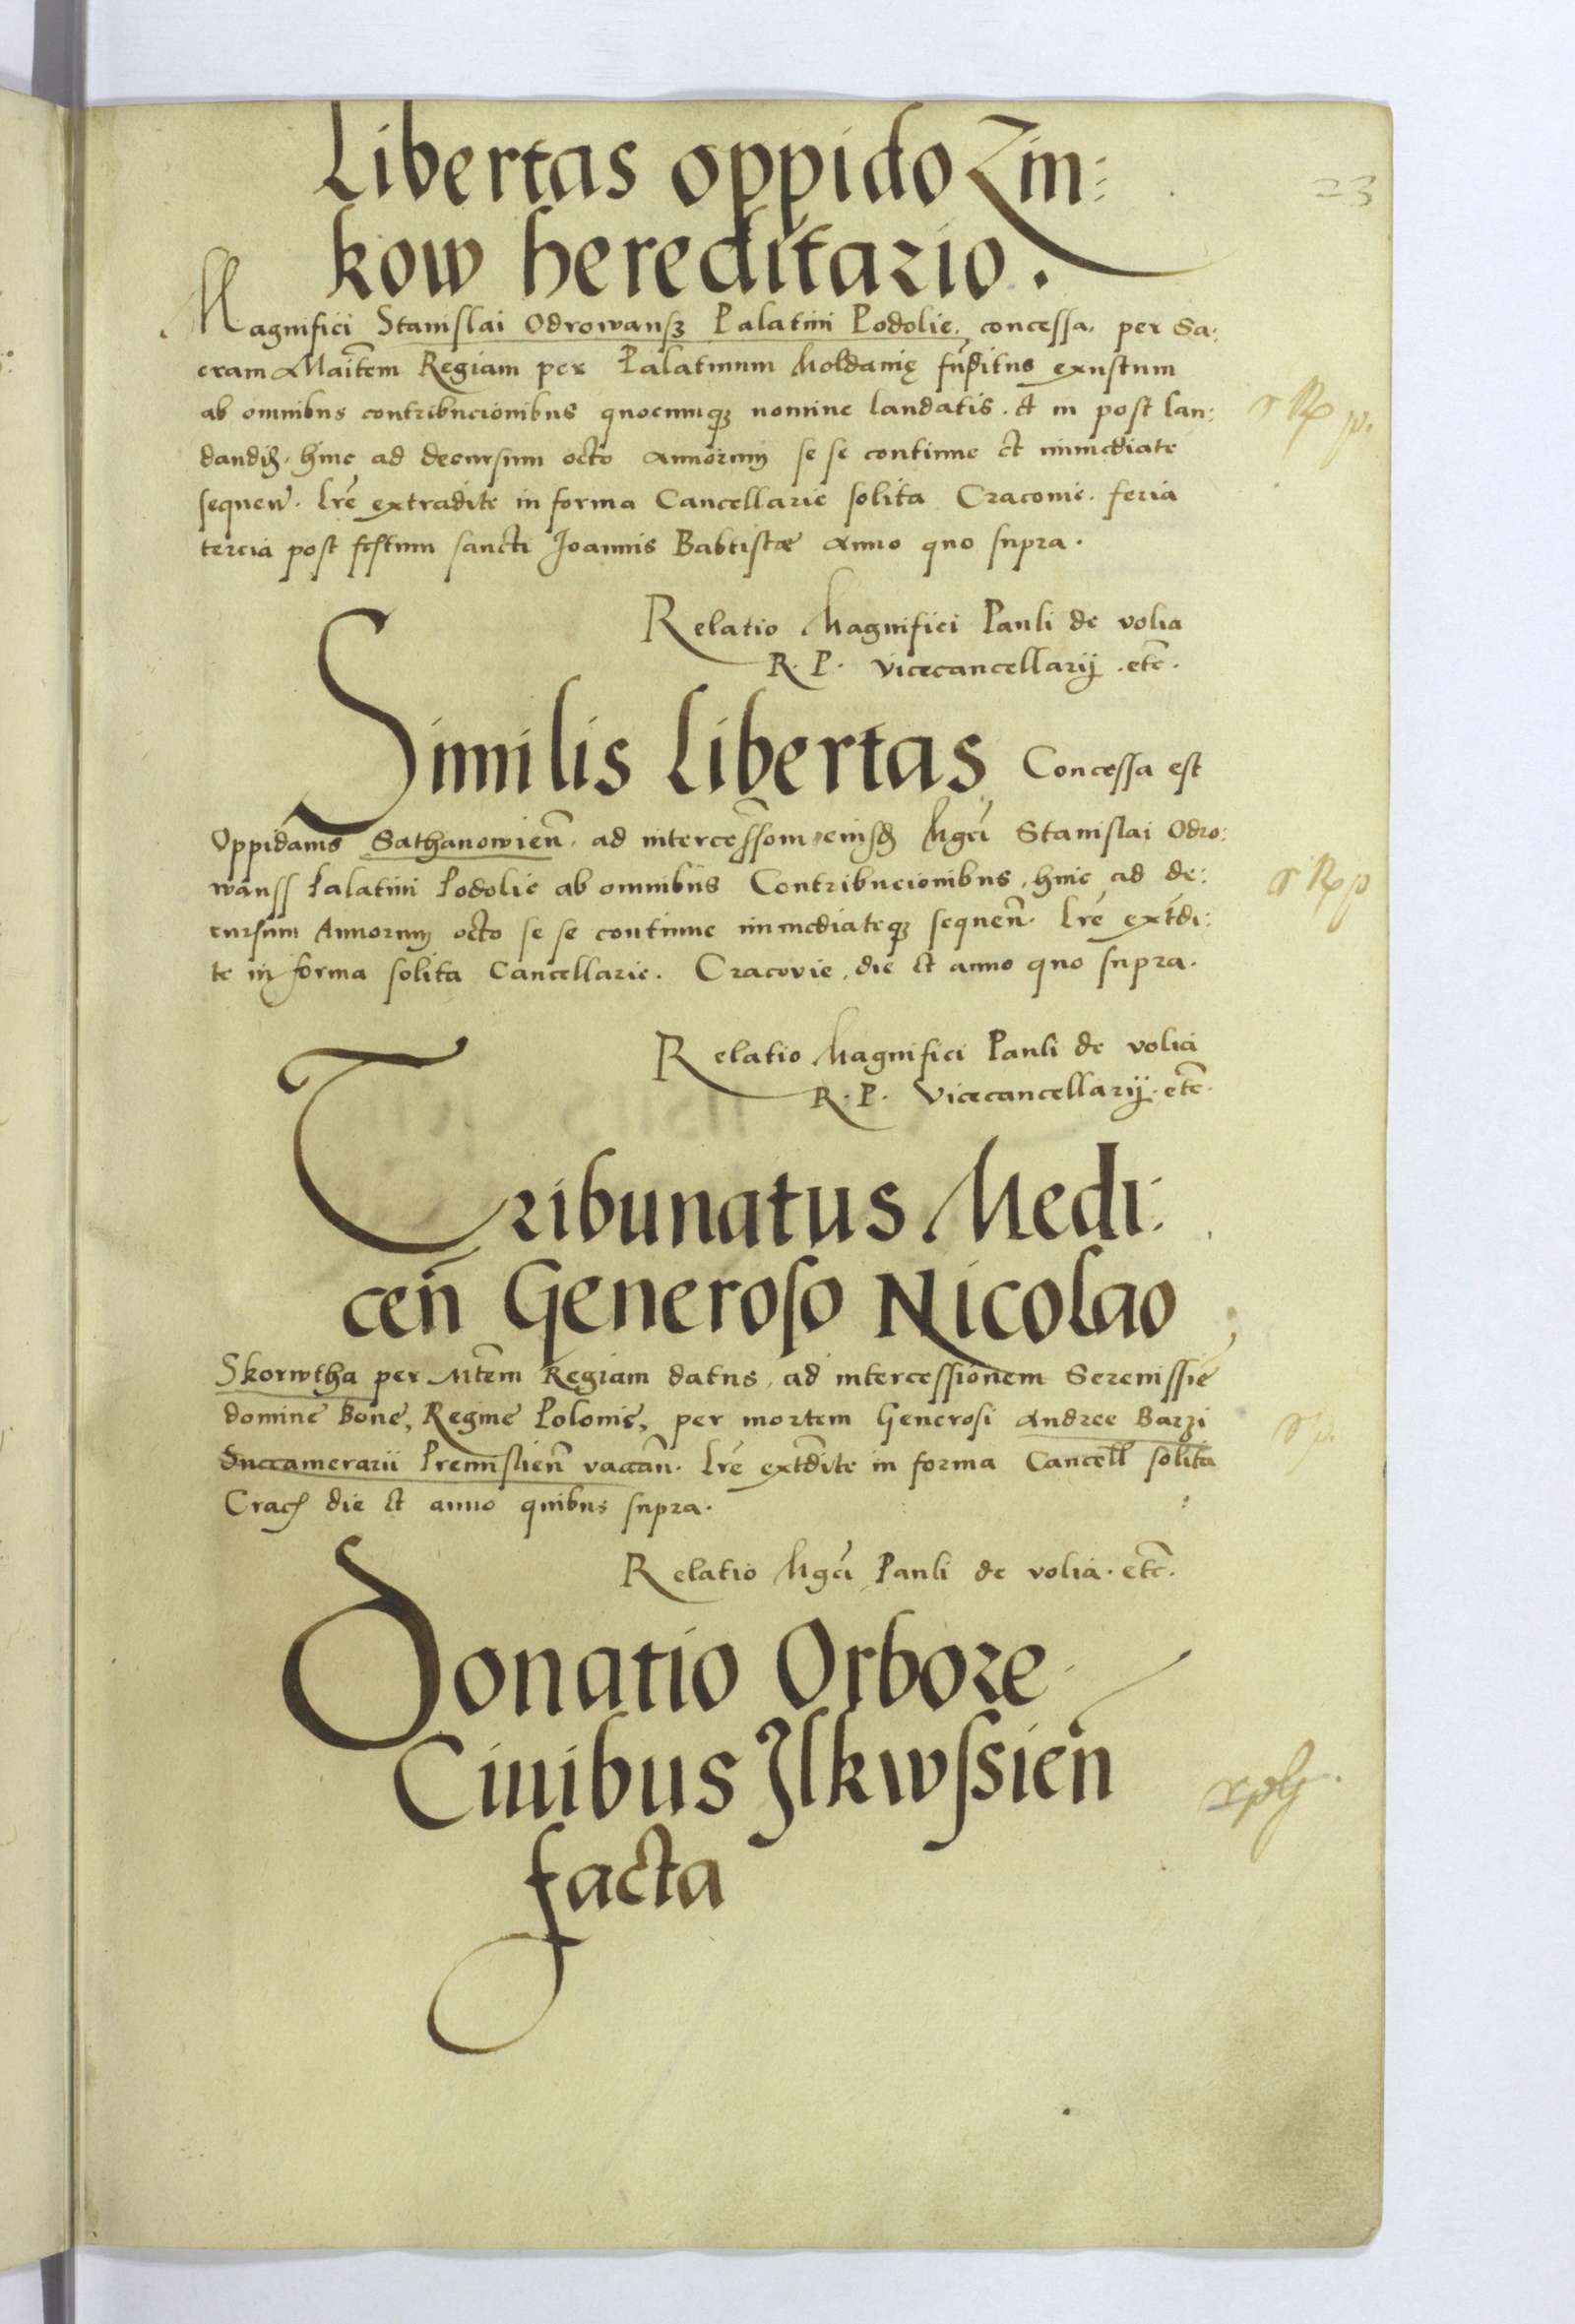 23
Libertas oppido Zin:
kow hereditario.
Magnifici Stanislai Odrowansz Palatini Podolie, concessa, per Sa:
cram Maiтem Regiam per Palatinum Moldavię fuñditus exustum
ab omnibus contribucionibus quocumqz nomine laudatis. et in post lau:
dandis. hinc ad decursum octo Annorum se se continue et immediate
sequen. Lrẽ extradite in forma Cancellarie solita Cracovie. feria
tercia post festum sancti Joannis Babtistæ Anno quo supra.
Relatio Magnifici Pauli de volia
R. P. Vicecancellarij .etc̃.
Similis Libertas Concessa est
Oppidanis Sathanowień. ad intercessiom eiusd Mgci Stanislai Odro:
wanss Palatini Podolie ab omnibus Contribucionibus, hinc ad de:
cursum Annorum octo se se continue immediateqz sequeñ. Lrẽ extdi:
te in forma solita Cancellarie. Cracovie, die et anno quo supra.
Relatio Magnifici Pauli de volia
R. P. Vicecancellarij. etc̃.
Tribunatus Medi:
ceñ Generoso Nicolao
Skorwtha per Mtẽm Regiam datus, ad intercessionem Serenissie
domine Bone, Regine Polonie, per mortem Generosi Andree Barzi
Succamerarii Premislień vacań. Lrẽ extdite in forma Cancell solita
Crac die et anno quibus supra.
Relatio Mgci Pauli de volia. etc̃.
Donatio Orbore
Civibus Ilkwssień
facta